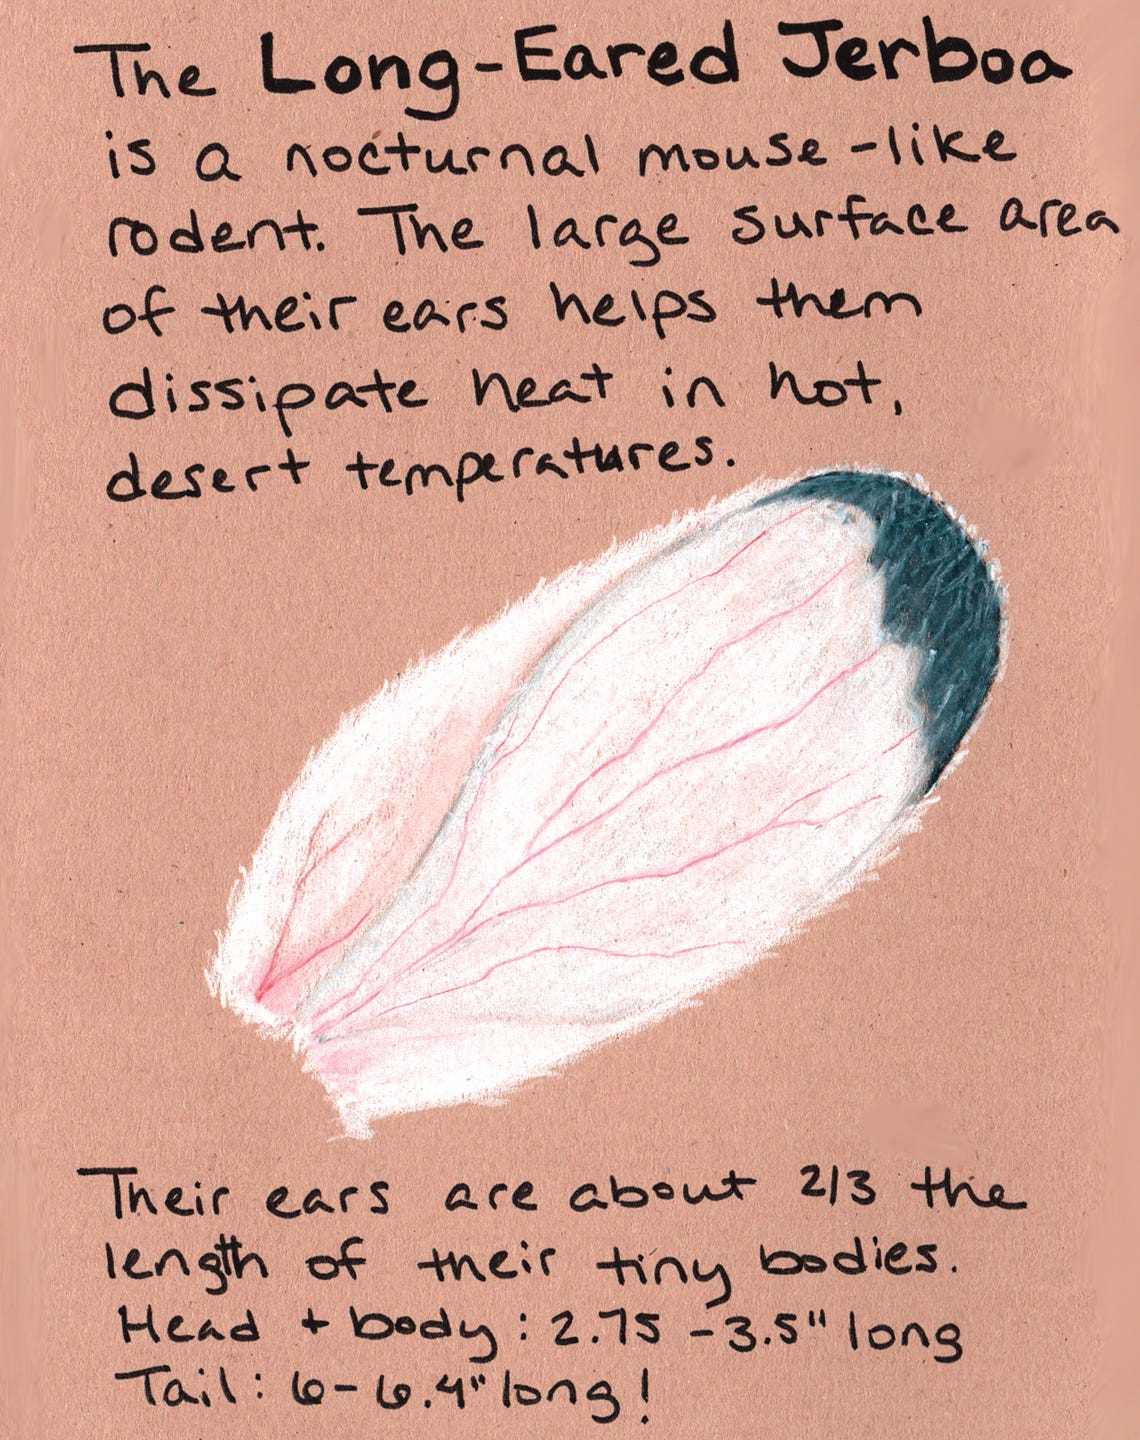 The Long-Eared Jerboa
is a nocturnal mouse-like
rodent. The large surface area
of their ears helps them
dissipate heat in hot,
desert temperatures.
Their ears are about 2/3 the
length of their tiny bodies.
Head + body: 2.75 - 3.5" long
Tail: 6 - 6.4" long!